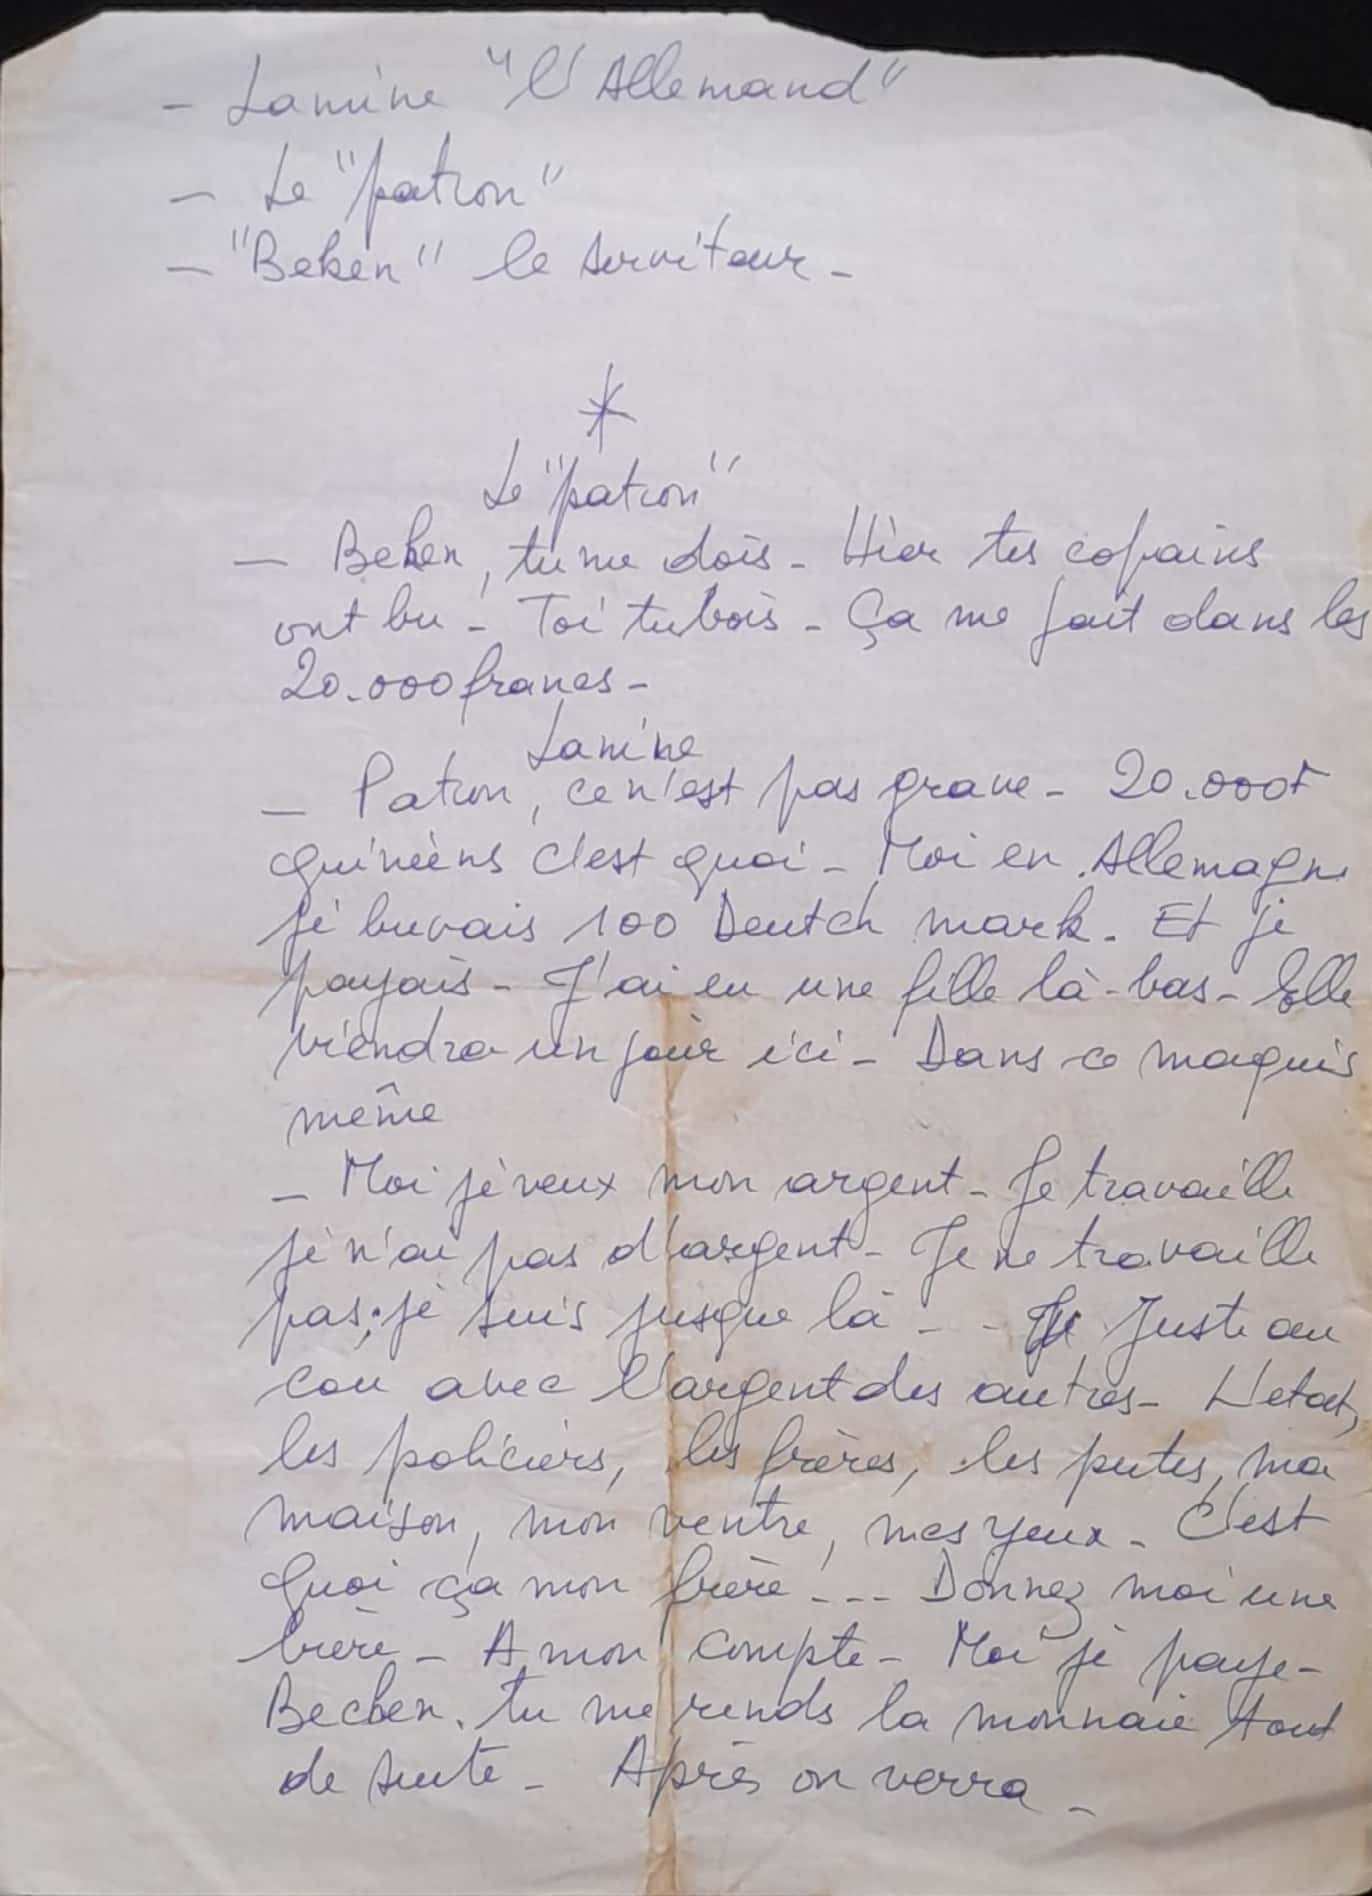 - Lamine "l'Allemand"
- Le "patron"
- "Beken" le serviteur -
*
Le "patron"
- Beken, tu me dois - Hier tes copains
ont bu - Toi tu bois - Ça me fait dans les
20.000 francs -
Lamine
- Patron, ce n'est pas grave - 20.000F
guinéens c'est quoi - Moi en Allemagne
je buvais 100 Deutch mark. Et je
payais - J'ai eu une fille là-bas - Elle
viendra un jour ici - Dans ce maquis
même
- Moi je veux mon argent - Je travaille
je n'ai pas d'argent - Je ne travaille
pas; je suis jusque là - - Juste au
cou avec l'argent des autres - L'etat,
les policiers, les frères, les putes, ma
maison, mon ventre, mes yeux - C'est
quoi ça mon frère - - - Donnez moi une
bière - A mon compte - Moi je paye -
Becken. tu me rends la monnaie tout
de suite - Après on verra -